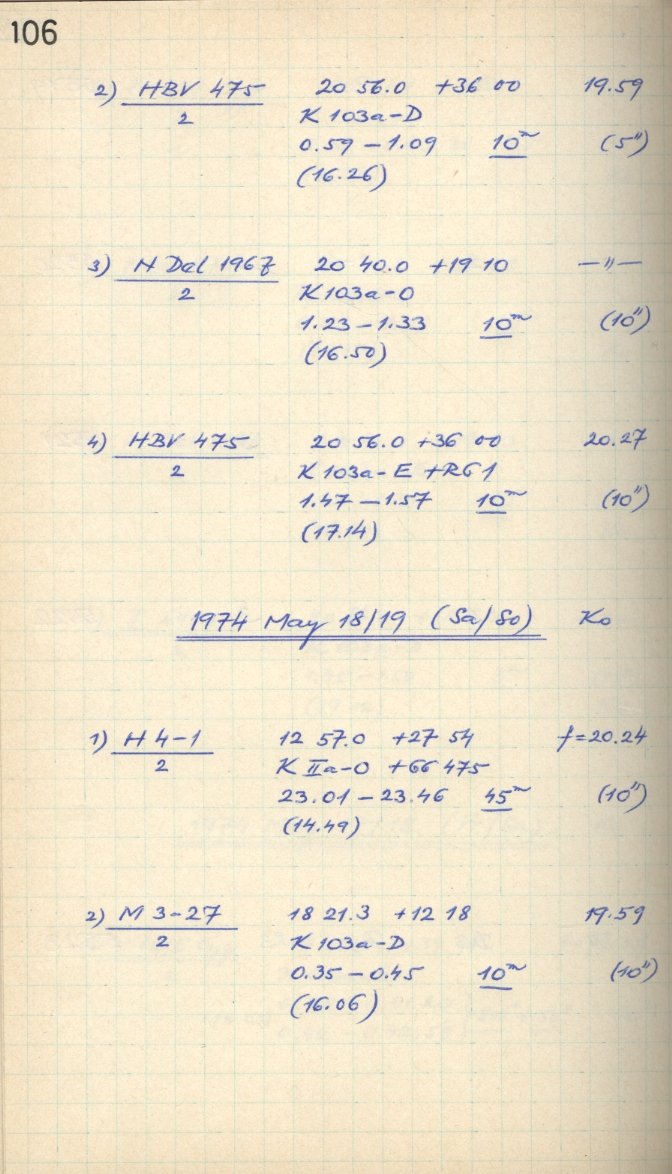 106
2) HBV 475 20 56.0 +36 00 19.59
2 K 103a-D
0.59 – 1.09 10ᵐ (5")
(16.26)
3) N Del 1967 20 40.0 +19 10 —"—
2 K 103a-O
1.23 – 1.33 10ᵐ (10")
(16.50)
4) HBV 475 20 56.0 +36 00 20.27
2 K 103a-E +RG1
1.47 – 1.57 10ᵐ (10")
(17.14)
1974 May 18/19 (Sa/So) Ko
1) H 4-1 12 57.0 +27 54 f=20.24
2 K IIa-O +GG 475
23.01 – 23.46 45ᵐ (10")
(14.49)
2) M 3-27 18 21.3 +12 18 19.59
2 K 103a-D
0.35 – 0.45 10ᵐ (10")
(16.06)